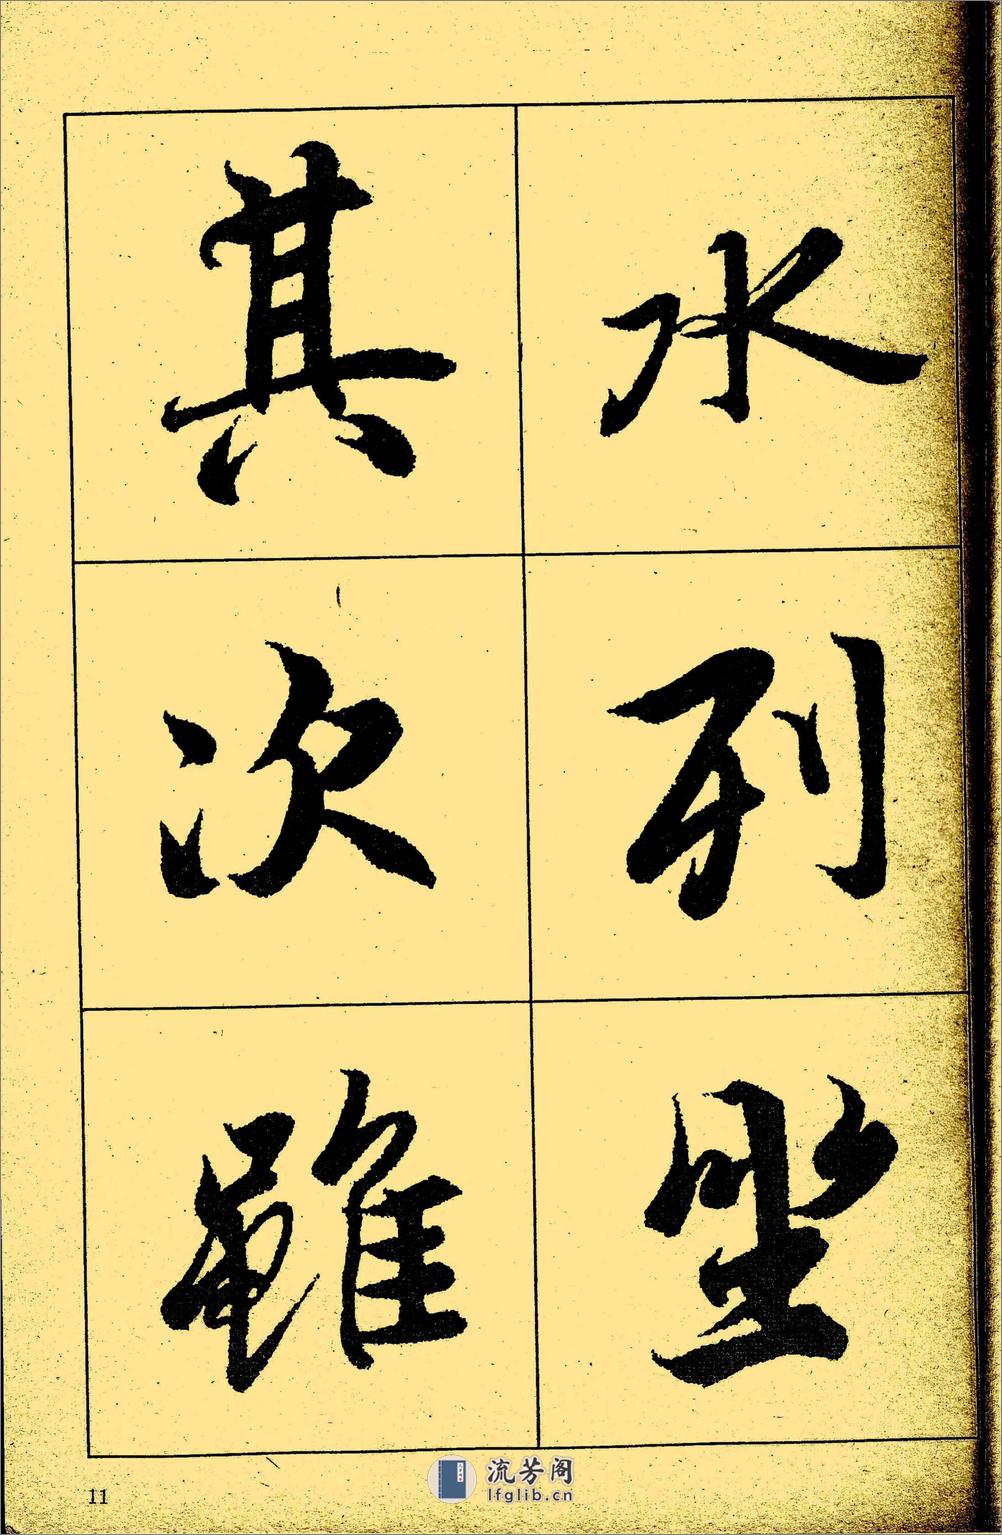 水列坐
其次雖
11
流芳阁
lfglib.cn